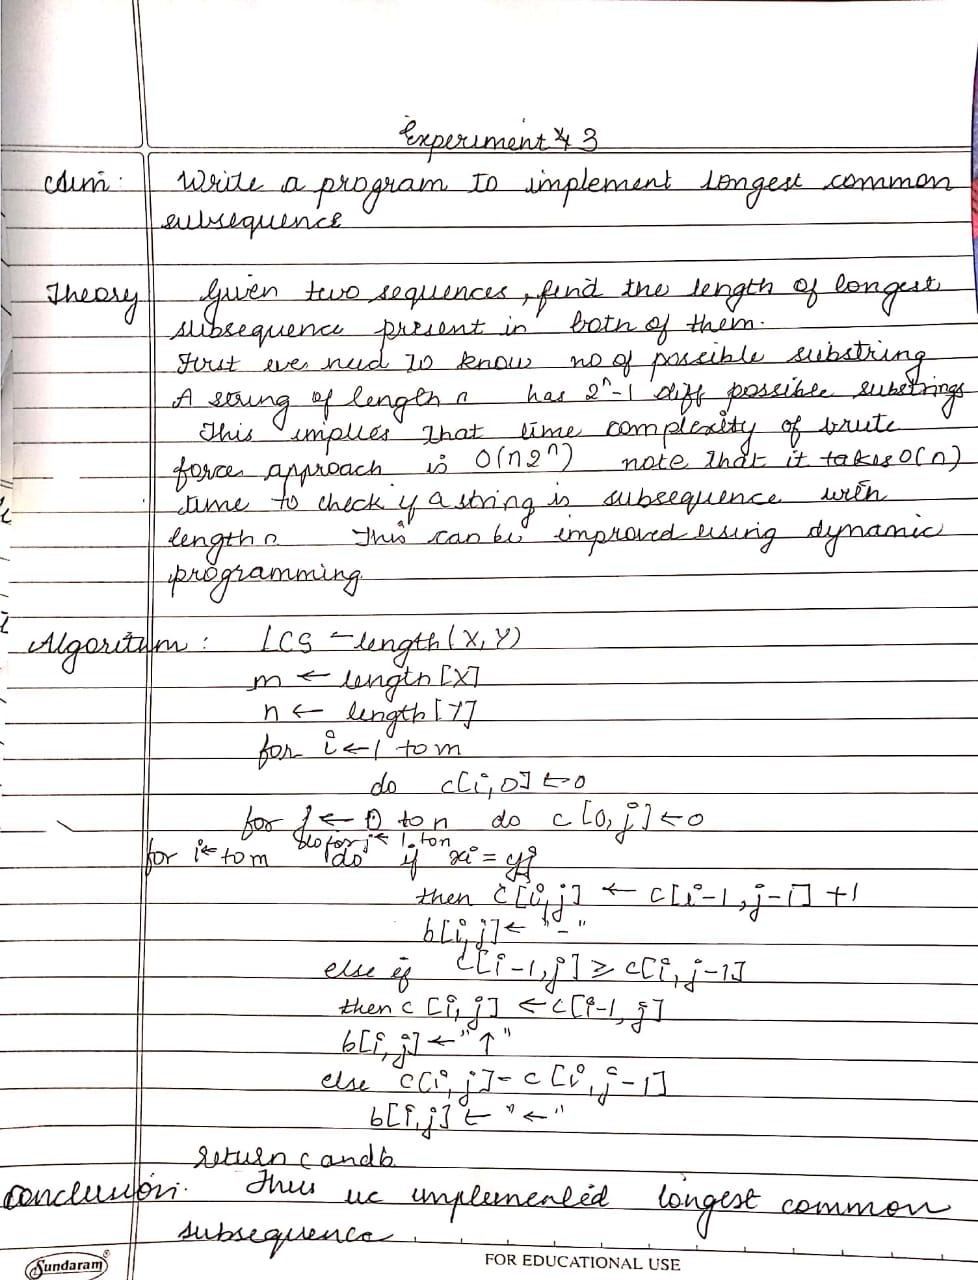 Experiment # 3
Aim: Write a program to implement longest common
subsequence
Theory Given two sequences, find the length of longest
subsequence present in both of them.
First we need to know no of possible substring
A string of length n has 2^n-1 diff possible substrings
This implies that time complexity of brute
force approach is O(n2^n) note that it takes O(n)
time to check if a string is subsequence with
length n This can be improved using dynamic
programming.
Algoritum: LCS-length(X,Y)
m ← length [X]
n ← length [Y]
for i←1 to m
do c[i,0] ←0
for j ← 0 to n do c[0,j]←0
do for j← 1 to n
for i← to m do if xi = yj
then c[i,j] ← c[i-1,j-1] +1
b[i,j]← "-"
else if c[i-1,j] ≥ c[i,j-1]
then c [i,j] ← c[i-1,j]
b[i,j] ← "↑"
else c[i,j]- c [i,j-1]
b[i,j] ← "←"
return c and b
conclusion. Thus we implemented longest common
subsequence
Sundaram® FOR EDUCATIONAL USE